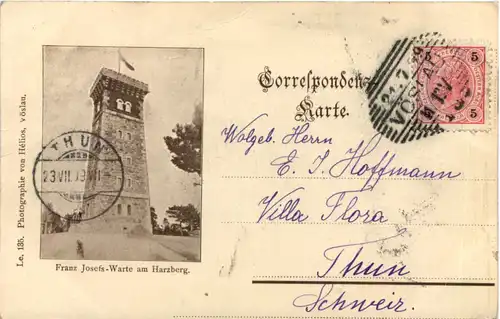 Correspondenz-
Karte.
5 5
5 5
VÖSLAU
THUN
23.VII.
Wolgeb. Herrn
E. J. Hoffmann
Villa Flora
Thun
Schweiz.
Franz Josefs-Warte am Harzberg.
Le. 135. Photographie von Hélios, Vöslau.